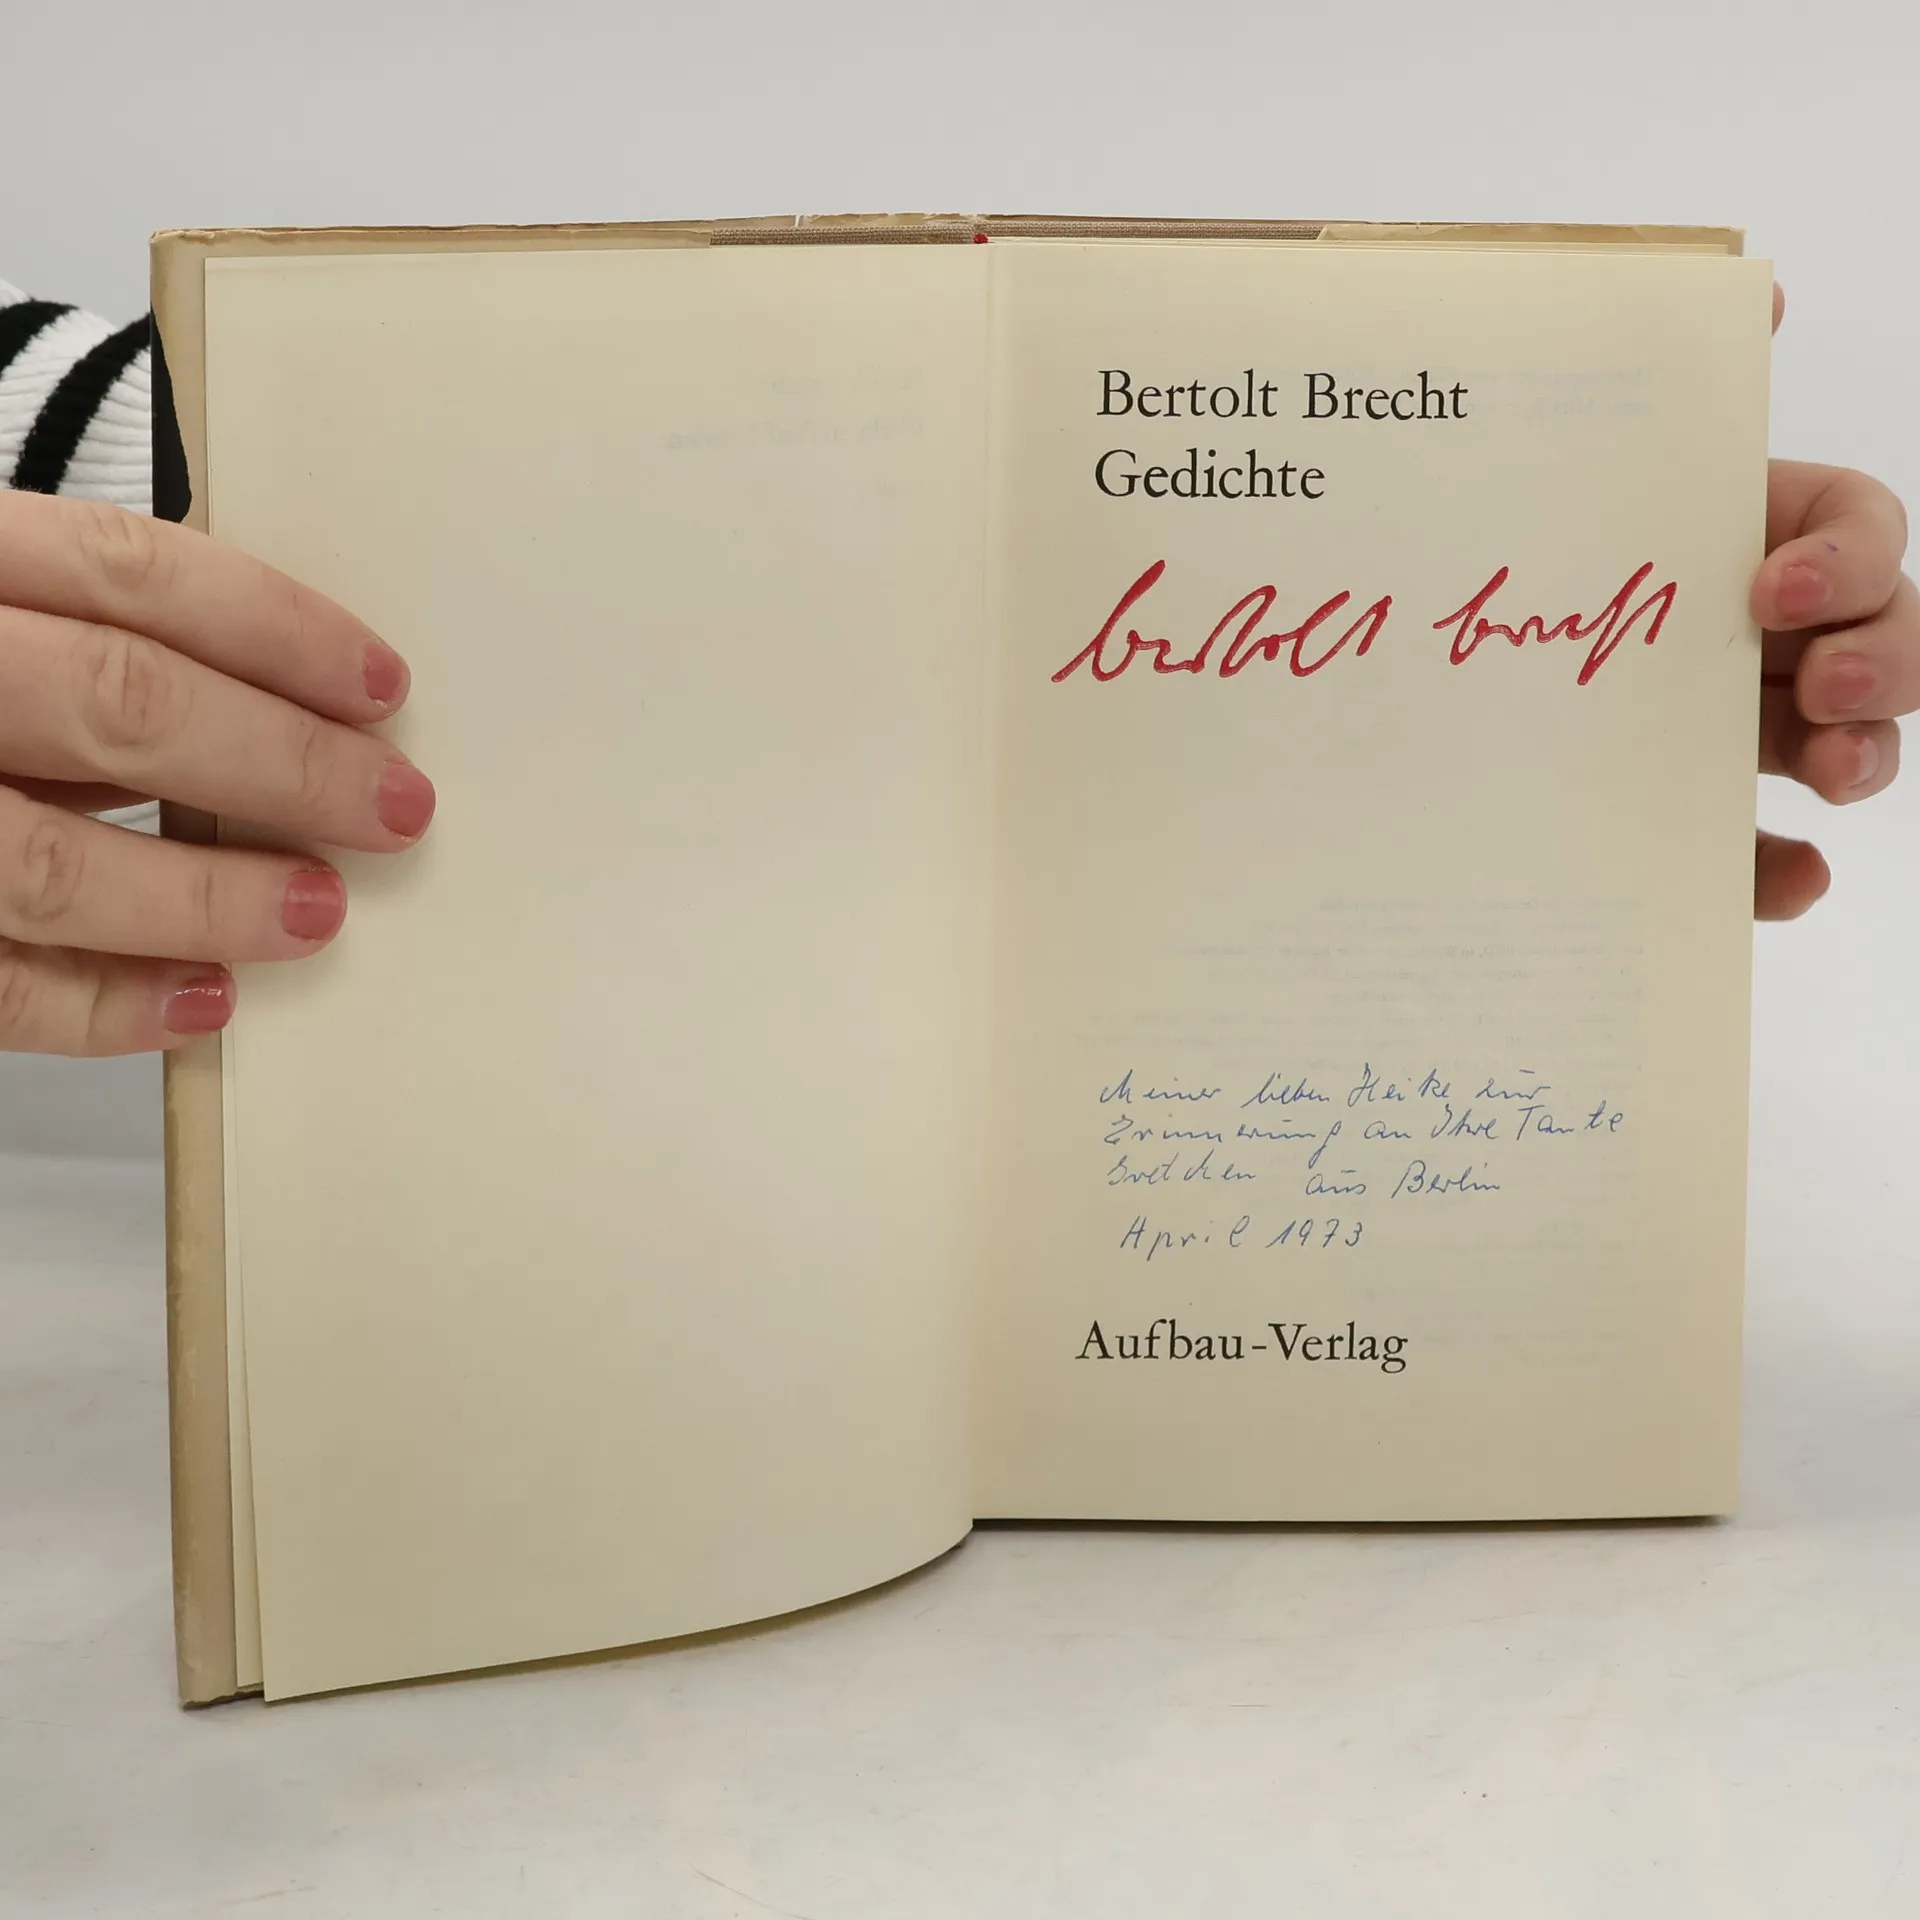 Bertolt Brecht
Gedichte
bertolt brecht
Meiner lieben Heike zur
Erinnerung an Ihre Tante
Gretchen aus Berlin
April 1973
Aufbau-Verlag